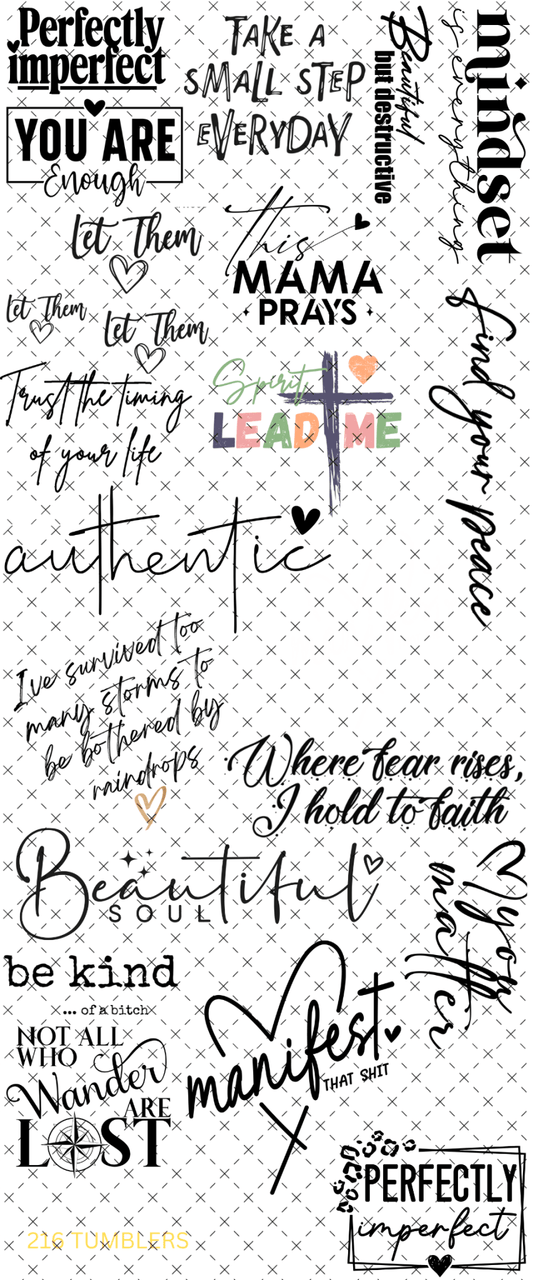 Perfectly
imperfect
TAKE A
SMALL STEP
EVERYDAY
Beautiful
but destructive
mindset
is everything
YOU ARE
Enough
Let Them
This
MAMA
PRAYS
Let Them
Let Them
find your peace
Trust the timing
of your life
Spirit
LEAD ME
authentic
I've survived too
many storms to
be bothered by
raindrops
Where fear rises,
I hold to faith
Beautiful
SOUL
you
matter
be kind
... of a bitch
manifest
THAT SHIT
NOT ALL
WHO
Wander
ARE
LOST
PERFECTLY
imperfect
216 TUMBLERS